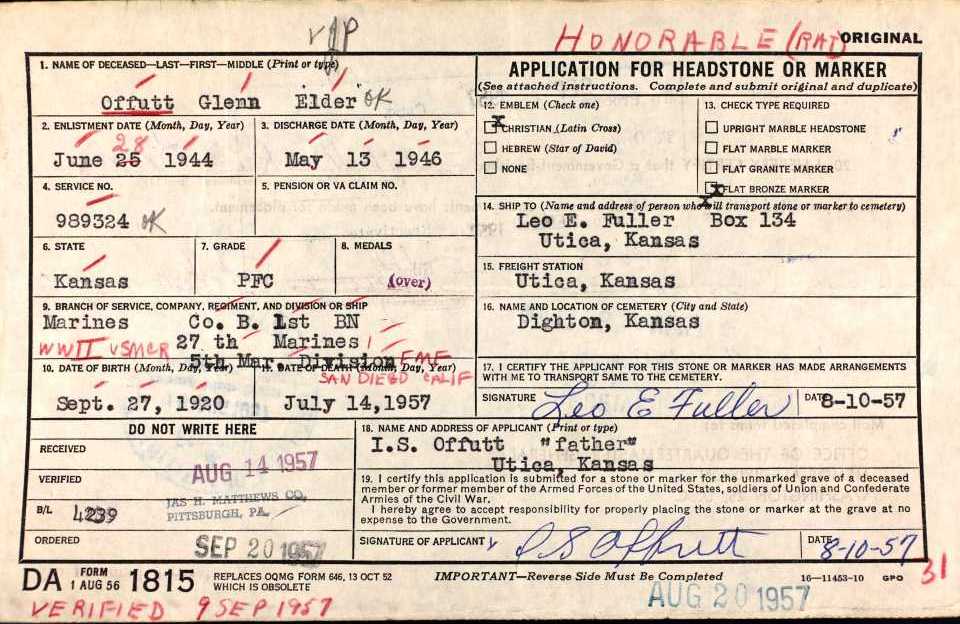 HONORABLE (RAT)
ORIGINAL
1. NAME OF DECEASED—LAST—FIRST—MIDDLE (Print or type)
Offutt Glenn Elder OK
2. ENLISTMENT DATE (Month, Day, Year)
28
June 25 1944
3. DISCHARGE DATE (Month, Day, Year)
May 13 1946
4. SERVICE NO.
989324 OK
5. PENSION OR VA CLAIM NO.
6. STATE
Kansas
7. GRADE
PFC
8. MEDALS
(over)
9. BRANCH OF SERVICE, COMPANY, REGIMENT, AND DIVISION OR SHIP
Marines Co. B. 1st BN
WWII USMCR 27 th Marines
5th Mar. Division FMF
SAN DIEGO CALIF
10. DATE OF BIRTH (Month, Day, Year)
Sept. 27, 1920
11. DATE OF DEATH (Month, Day, Year)
July 14,1957
APPLICATION FOR HEADSTONE OR MARKER
(See attached instructions. Complete and submit original and duplicate)
12. EMBLEM (Check one)
x CHRISTIAN (Latin Cross)
HEBREW (Star of David)
NONE
13. CHECK TYPE REQUIRED
UPRIGHT MARBLE HEADSTONE
FLAT MARBLE MARKER
FLAT GRANITE MARKER
x FLAT BRONZE MARKER
14. SHIP TO (Name and address of person who will transport stone or marker to cemetery)
Leo E. Fuller Box 134
Utica, Kansas
15. FREIGHT STATION
Utica, Kansas
16. NAME AND LOCATION OF CEMETERY (City and State)
Dighton, Kansas
17. I CERTIFY THE APPLICANT FOR THIS STONE OR MARKER HAS MADE ARRANGEMENTS
WITH ME TO TRANSPORT SAME TO THE CEMETERY.
SIGNATURE Leo E Fuller DATE 8-10-57
DO NOT WRITE HERE
RECEIVED
AUG 14 1957
VERIFIED
JAS H. MATTHEWS CO.
PITTSBURGH, PA.
B/L 4239
ORDERED
SEP 20 1957
18. NAME AND ADDRESS OF APPLICANT (Print or type)
I.S. Offutt "father"
Utica, Kansas
19. I certify this application is submitted for a stone or marker for the unmarked grave of a deceased
member or former member of the Armed Forces of the United States, soldiers of Union and Confederate
Armies of the Civil War.
I hereby agree to accept responsibility for properly placing the stone or marker at the grave at no
expense to the Government.
SIGNATURE OF APPLICANT I S Offutt DATE 8-10-57
DA FORM 1 AUG 56 1815 REPLACES OQMG FORM 646, 13 OCT 52
WHICH IS OBSOLETE
IMPORTANT—Reverse Side Must Be Completed
16—11453-10 GPO
31
VERIFIED 9 SEP 1957
AUG 20 1957